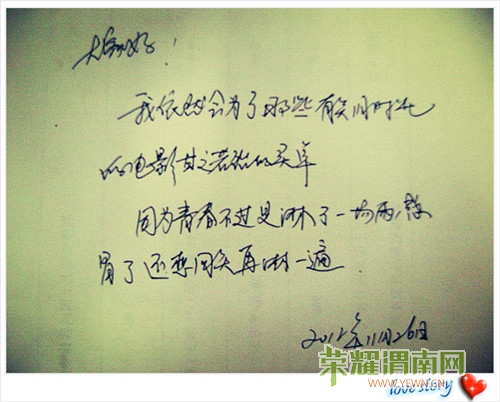 大家好！
我依然会为了那些有关旧时光
的电影甘之若饴的买单
因为青春不过是淋了一场雨，感
冒了还想回头再淋一遍
2012年11月26日
荣耀渭南网
WWW.YEWN.CN
love story